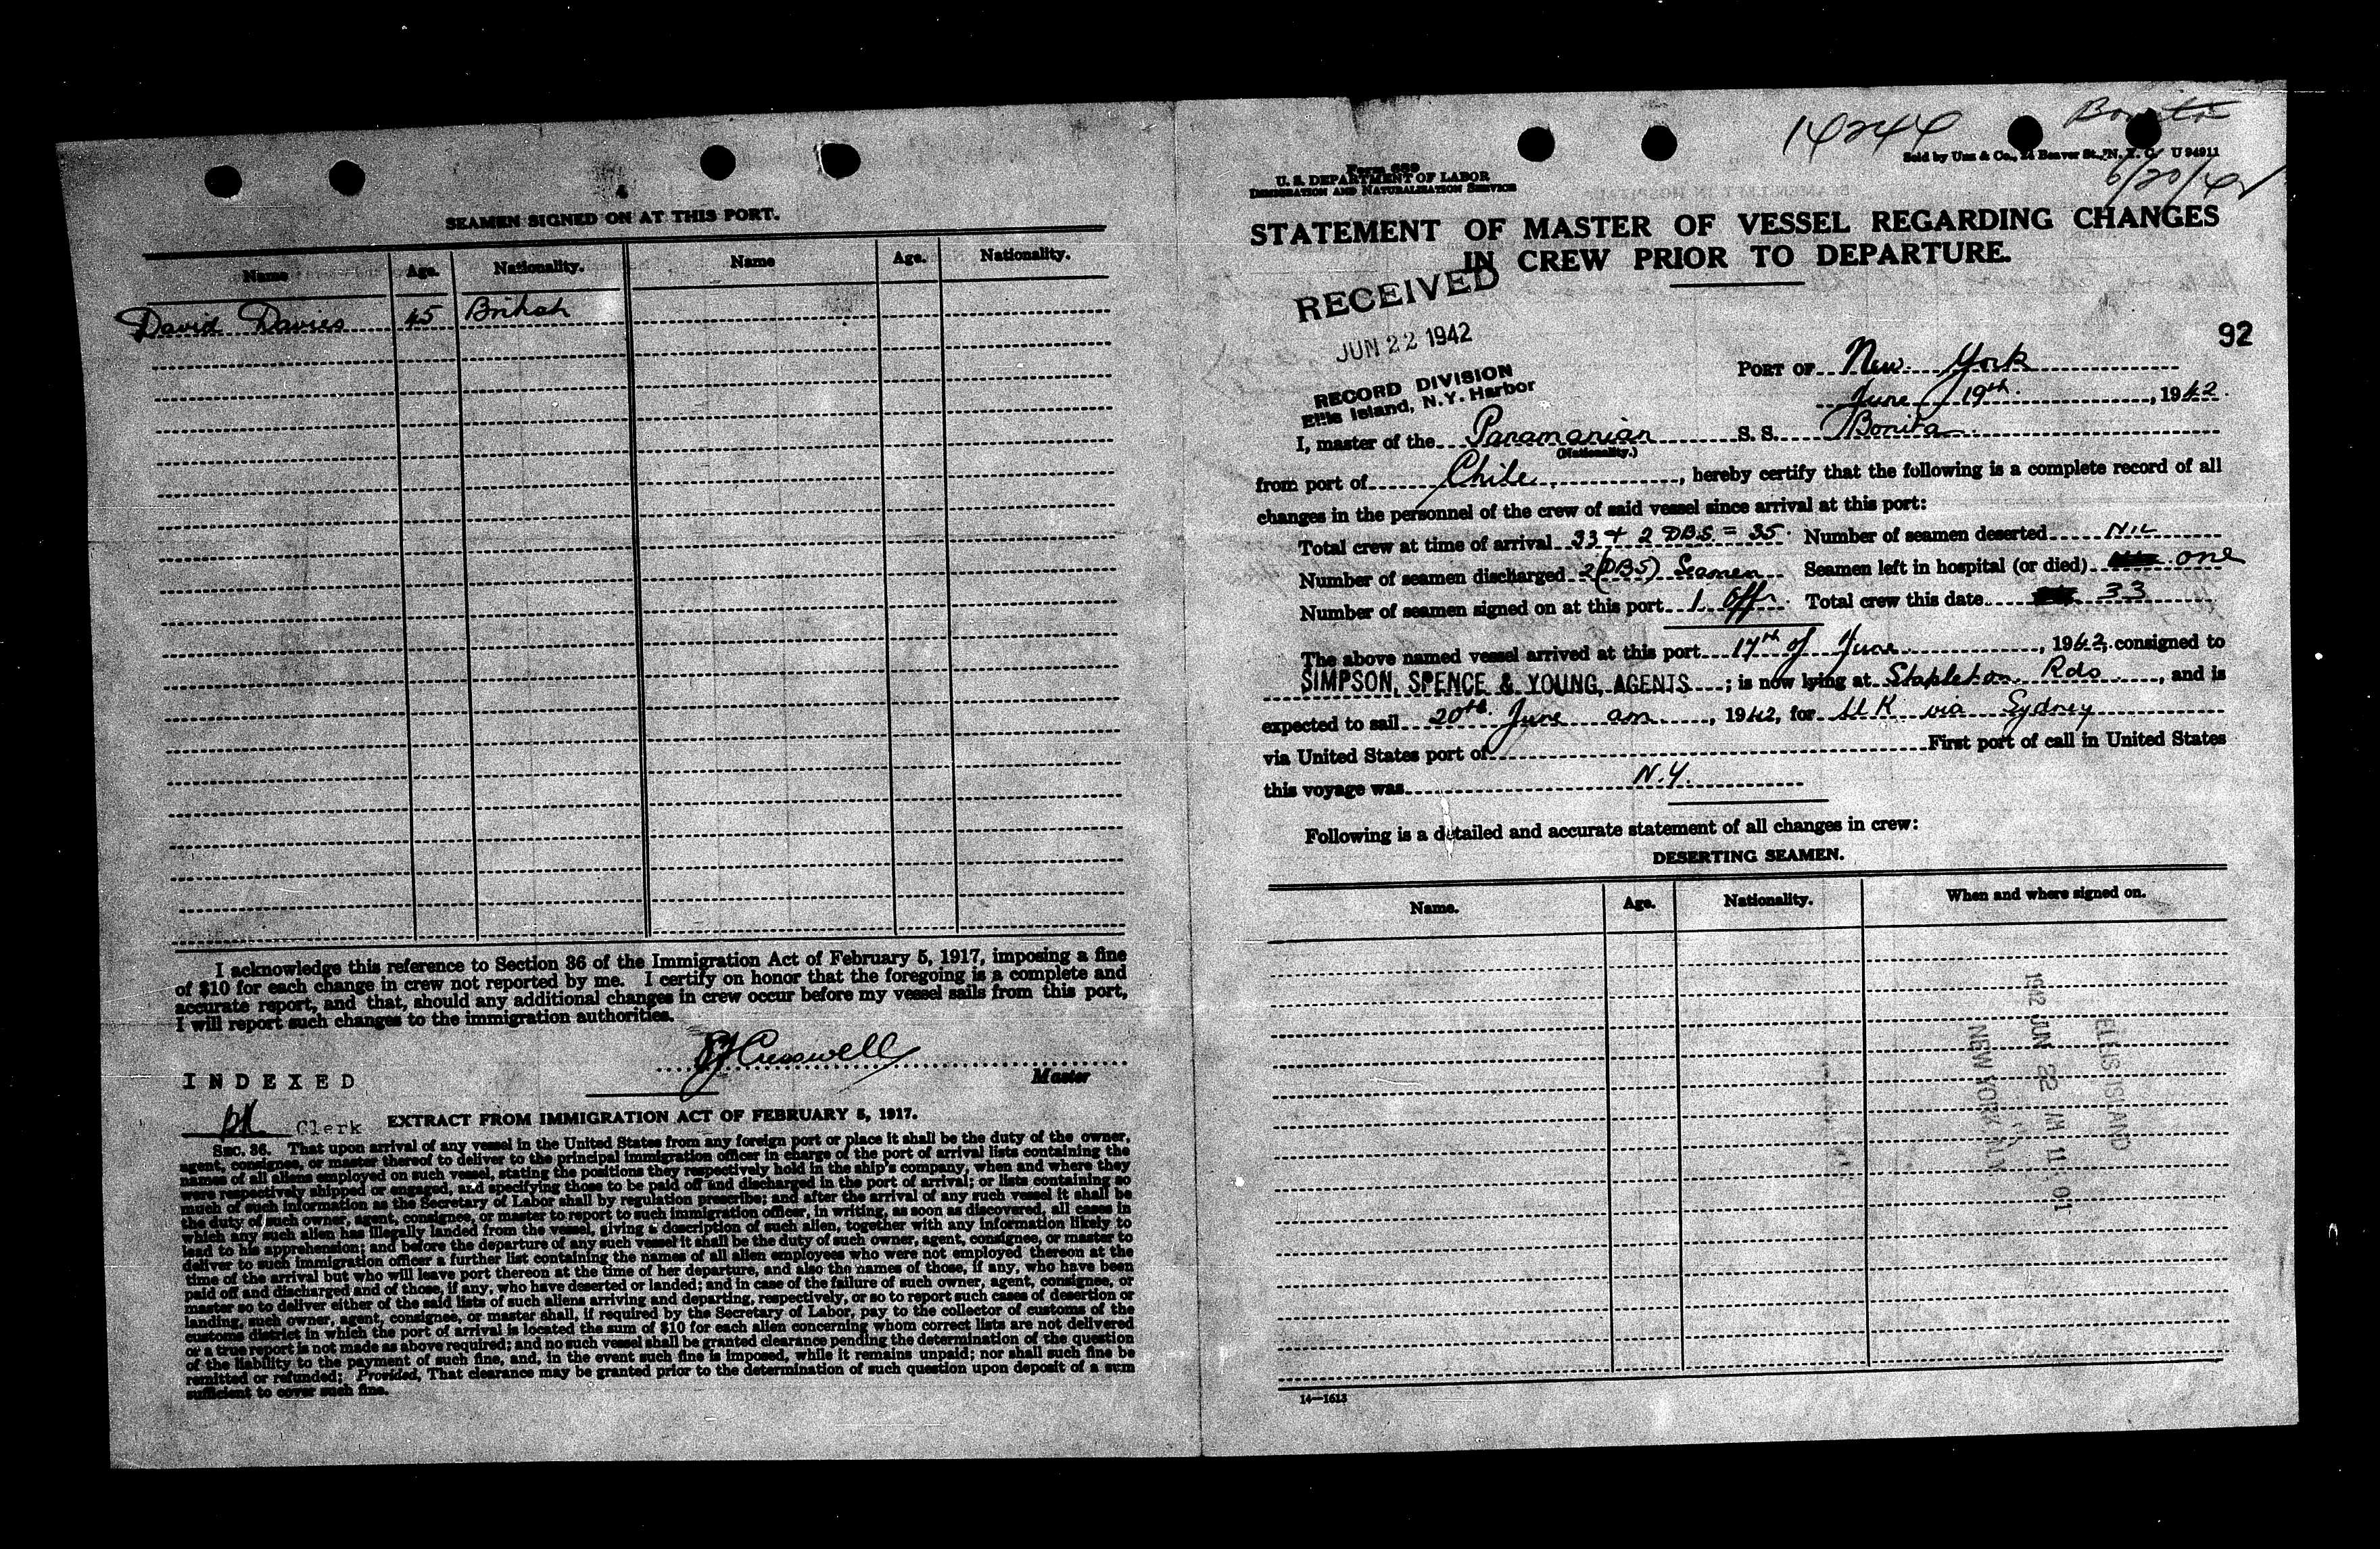 4
SEAMEN SIGNED ON AT THIS PORT.
Name Age. Nationality. Name Age. Nationality.
David Davies 45 British
I acknowledge this reference to Section 36 of the Immigration Act of February 5, 1917, imposing a fine
of $10 for each change in crew not reported by me. I certify on honor that the foregoing is a complete and
accurate report, and that, should any additional changes in crew occur before my vessel sails from this port,
I will report such changes to the immigration authorities.
Cresswell
Master
INDEXED
Clerk
EXTRACT FROM IMMIGRATION ACT OF FEBRUARY 5, 1917.
SEC. 36. That upon arrival of any vessel in the United States from any foreign port or place it shall be the duty of the owner,
agent, consignee, or master thereof to deliver to the principal immigration officer in charge of the port of arrival lists containing the
names of all aliens employed on such vessel, stating the positions they respectively hold in the ship's company, when and where they
were respectively shipped or engaged, and specifying those to be paid off and discharged in the port of arrival; or lists containing so
much of such information as the Secretary of Labor shall by regulation prescribe; and after the arrival of any such vessel it shall be
the duty of such owner, agent, consignee, or master to report to such immigration officer, in writing, as soon as discovered, all cases in
which any such alien has illegally landed from the vessel, giving a description of such alien, together with any information likely to
lead to his apprehension; and before the departure of any such vessel it shall be the duty of such owner, agent, consignee, or master to
deliver to such immigration officer a further list containing the names of all alien employees who were not employed thereon at the
time of the arrival but who will leave port thereon at the time of her departure, and also the names of those, if any, who have been
paid off and discharged and of those, if any, who have deserted or landed; and in case of the failure of such owner, agent, consignee, or
master so to deliver either of the said lists of such aliens arriving and departing, respectively, or so to report such cases of desertion or
landing, such owner, agent, consignee, or master shall, if required by the Secretary of Labor, pay to the collector of customs of the
customs district in which the port of arrival is located the sum of $10 for each alien concerning whom correct lists are not delivered
or a true report is not made as above required; and no such vessel shall be granted clearance pending the determination of the question
of the liability to the payment of such fine, and, in the event such fine is imposed, while it remains unpaid; nor shall such fine be
remitted or refunded: Provided, That clearance may be granted prior to the determination of such question upon deposit of a sum
sufficient to cover such fine.
14244 Bonita
Form 689
U. S. DEPARTMENT OF LABOR
IMMIGRATION AND NATURALIZATION SERVICE
Sold by Unz & Co., 24 Beaver St., N. Y. C. U 94911
6/20/42
STATEMENT OF MASTER OF VESSEL REGARDING CHANGES
IN CREW PRIOR TO DEPARTURE.
RECEIVED
JUN 22 1942
RECORD DIVISION
Ellis Island, N.Y. Harbor
92
PORT OF New York
June 19th, 1942.
I, master of the Panamanian S. S. Bonita
(Nationality.)
from port of Chile, hereby certify that the following is a complete record of all
changes in the personnel of the crew of said vessel since arrival at this port:
Total crew at time of arrival 33 + 2 DBS = 35. Number of seamen deserted NIL
Number of seamen discharged 2 (DBS) Seamen Seamen left in hospital (or died) one
Number of seamen signed on at this port 1 Offr. Total crew this date 33
The above named vessel arrived at this port 17th of June, 1942, consigned to
SIMPSON, SPENCE & YOUNG, AGENTS; is now lying at Stapleton Rds, and is
expected to sail 20th June am, 1942, for U K via Sydney
via United States port of First port of call in United States
this voyage was N.Y.
Following is a detailed and accurate statement of all changes in crew:
DESERTING SEAMEN.
Name. Age. Nationality. When and where signed on.
ELLIS ISLAND
1942 JUN 22 AM 11 01
NEW YORK
14—1613